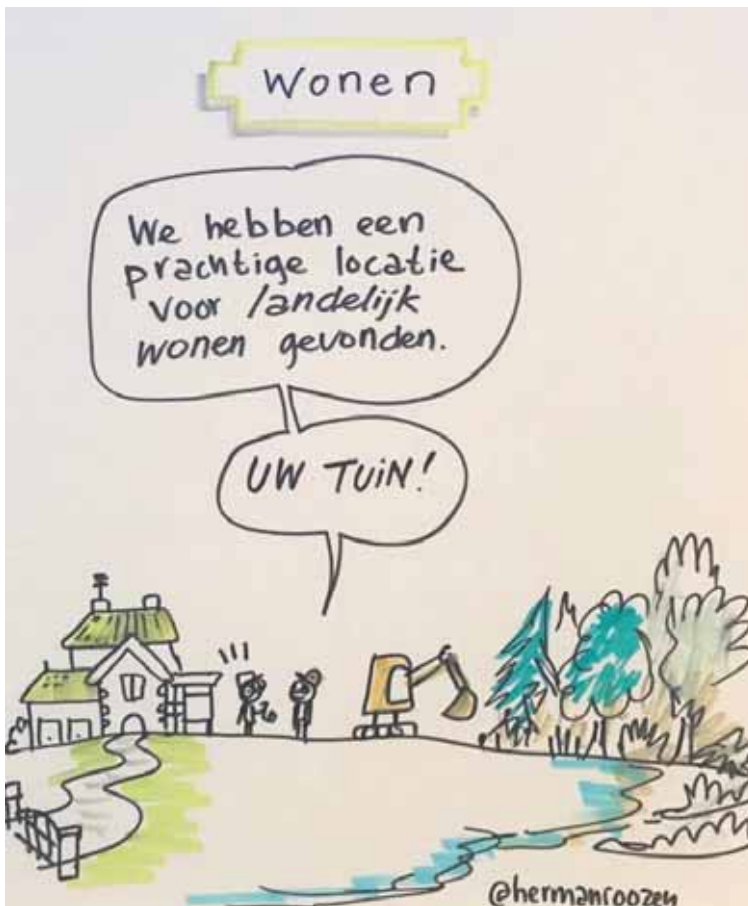 Wonen
We hebben een
prachtige locatie
voor landelijk
wonen gevonden.
UW TUIN!
@hermanroozen